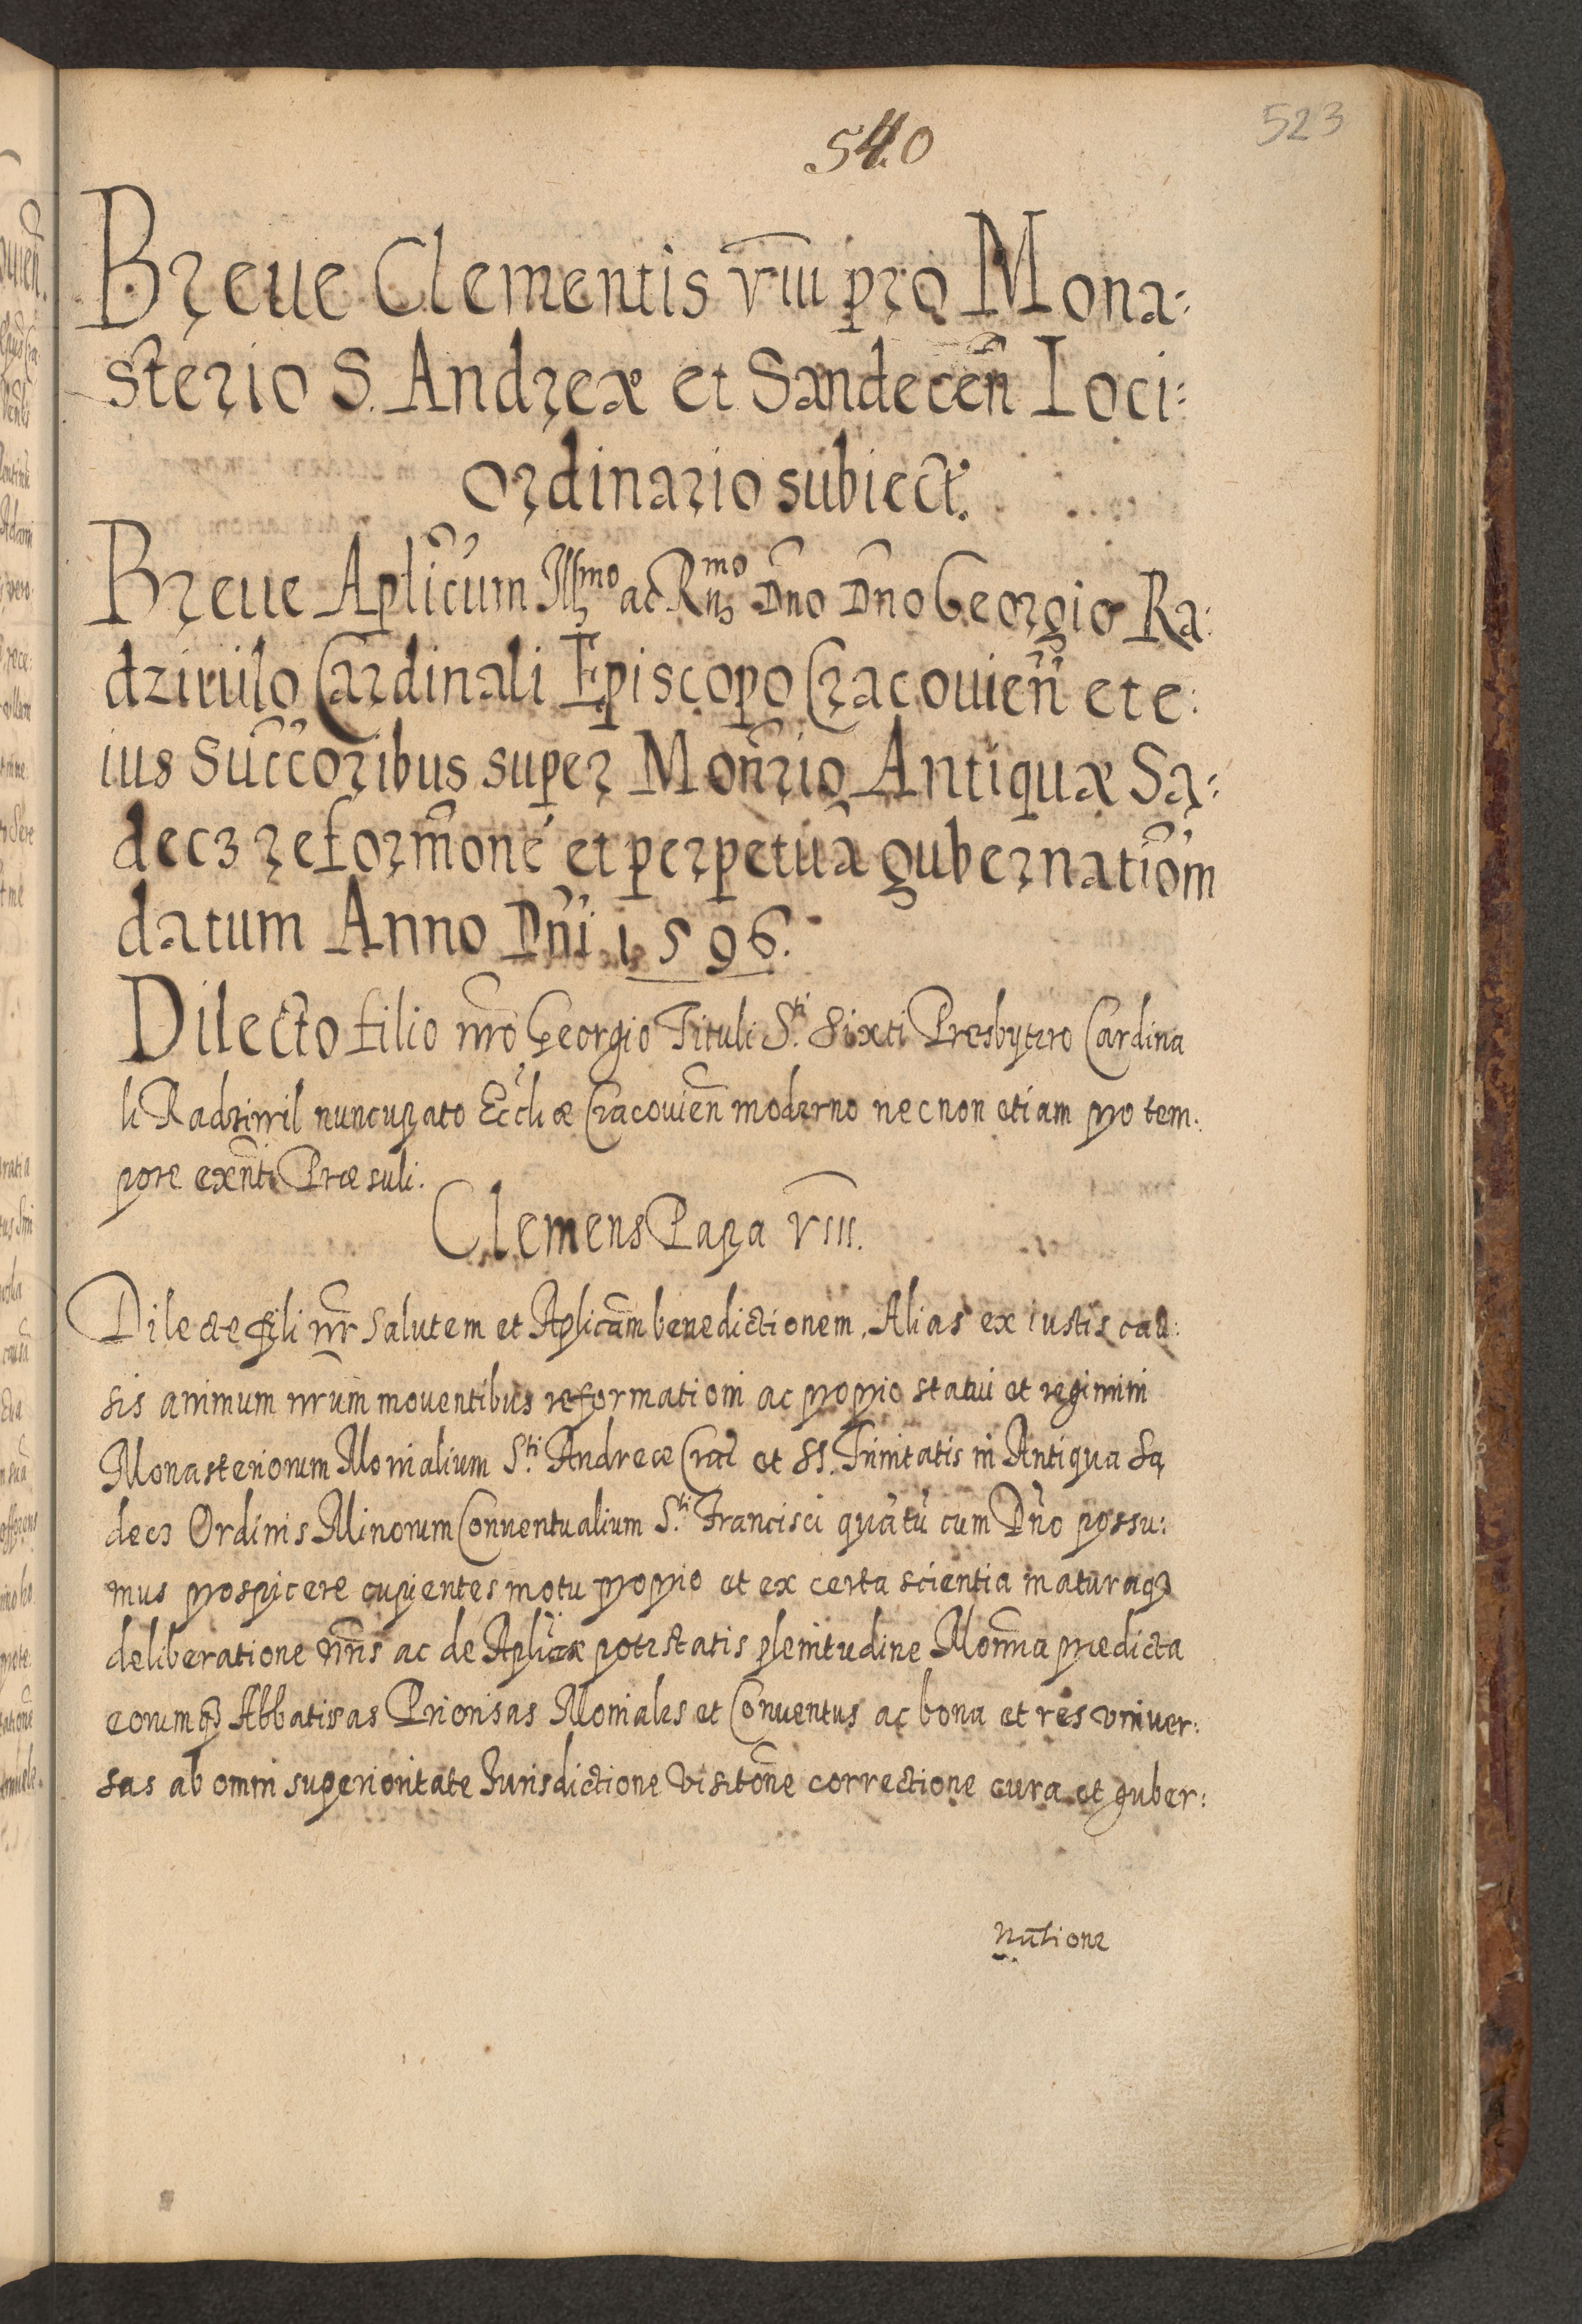 540
523
Breue Clementis VIII pro Mona:
sterio S. Andreæ et Sandecen̄ Loci:
ordinario subiect.
Breue Apl̃icum Ill͂mo ac Rmo Dño Dño Georgio Ra:
dziwilo Cardinali Episcopo Cracouien̄ et e:
ius Succ̃oribus super Moñrio Antiquæ Są:
decz reform̃one et perpetuã gubernatiõm
datum Anno Dñi 1596.
Dilecto filio nr̃o Georgio Tituli S.ti Sixti Presbytero Cardina
li Radziwil nuncupato Ecc̃liæ Cracouien̄ moderno necnon etiam pro tem:
pore exñti Præsuli.
Clemens Papa VIII.
Dilecte fili nr̃ Salutem et Apl̃icam benedictionem. Alias ex iustis cau:
sis animum nr̃um mouentibus reformationi ac proprio statui et regimini
Monasteriorum Monialium S.ti Andreæ Crac̃ et SS. Trinitatis in Antiqua Są
decz Ordinis Minorum Conuentualium S.ti Francisci quãtũ cum Dño possu:
mus prospicere cupientes motu proprio et ex certa scientia maturaqȝ
deliberatione nr̃is ac de Apl̃icæ potestatis plenitudine Moñria predicta
eorumqȝ Abbatissas Priorisas Moniales et Conuentus ac bona et res vniuer:
sas ab omni superioritate Iurisdictione Visitõne correctione cura et guber:
natione